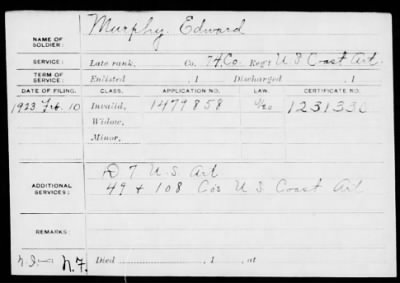 NAME OF SOLDIER: Murphy, Edward
SERVICE: Late rank, Co. 74 Co Reg't U S Coast Art.
TERM OF SERVICE: Enlisted , 1 Discharged , 1
DATE OF FILING. CLASS. APPLICATION NO. LAW. CERTIFICATE NO.
1923 Feb. 10 Invalid, 1479858 1231330
Widow,
Minor,
D 7 U.S. Art
ADDITIONAL SERVICES: 49 + 108 Cos U S Coast Art
REMARKS:
N.F. Died , 1 , at